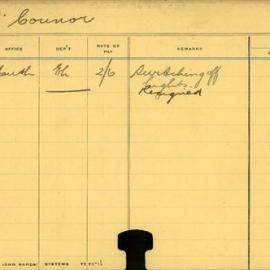 ' Connor
OFFICE DEP'T RATE OF PAY REMARKS
outh Eh 2/6 Switching off
lights.
Resigned
SYSTEMS